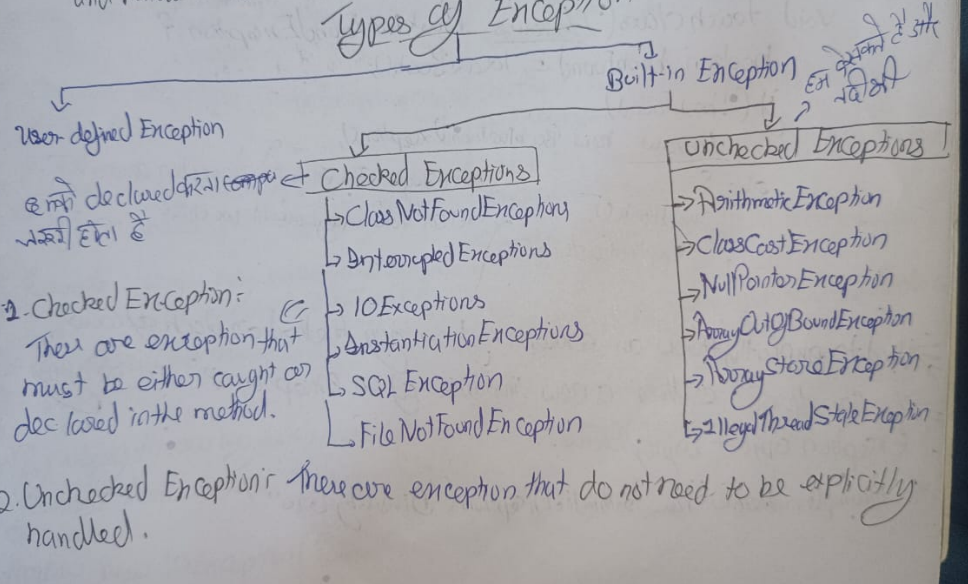 Types of Exception
Built-in Exception
User defined Exception
Checked Exceptions
Unchecked Exceptions
declared करना
जरूरी होता है
ClassNotFoundExceptions
InterruptedExceptions
IOExceptions
InstantiationExceptions
SQLException
FileNotFoundException
ArithmeticException
ClassCastException
NullPointerException
ArrayOutOfBoundException
ArrayStoreException
IllegalThreadStateException
1. Checked Exception:
These are exception that
must be either caught or
declared in the method.
2. Unchecked Exception: These are exception that do not need to be explicitly
handled.